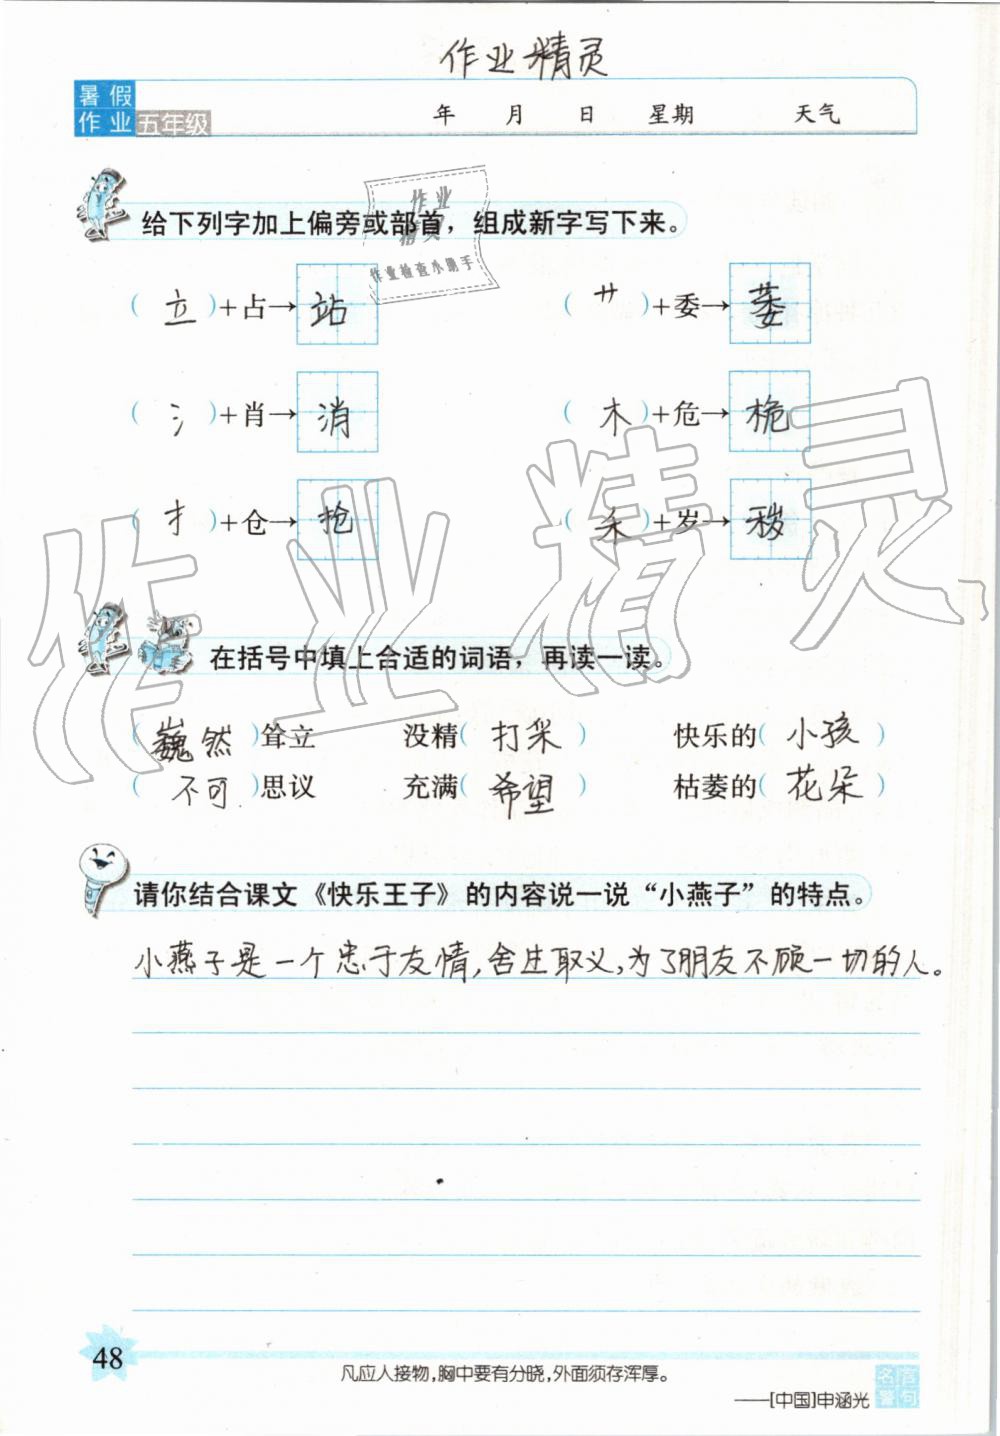 作业精灵
暑假
作业 五年级
年 月 日 星期 天气
作业
精灵
作业检查小助手
给下列字加上偏旁或部首，组成新字写下来。
（立）+占→站 （艹）+委→萎
（氵）+肖→消 （木）+危→桅
（扌）+仓→抢 （禾）+岁→秽
作业精灵
在括号中填上合适的词语，再读一读。
（巍然）耸立 没精（打采） 快乐的（小孩）
（不可）思议 充满（希望） 枯萎的（花朵）
请你结合课文《快乐王子》的内容说一说“小燕子”的特点。
小燕子是一个忠于友情，舍生取义，为了朋友不顾一切的人。
48
凡应人接物，胸中要有分晓，外面须存浑厚。
——[中国]申涵光
名言
警句